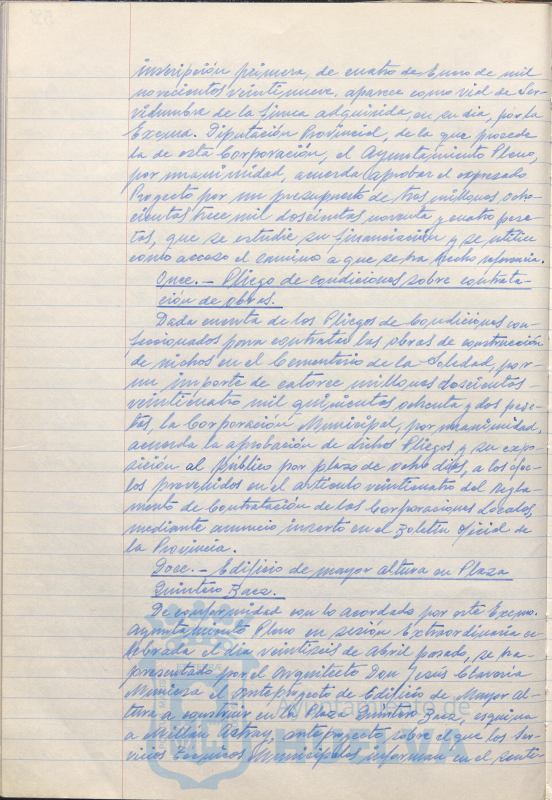 inscripción primera, de cuatro de Enero de mil
novecientos veintinueve, aparece como vial de Ser-
vidumbre de la finca adquirida, en su día, por la
Excma. Diputación Provincial, de la que procede
la de esta Corporación, el Ayuntamiento Pleno,
por unanimidad, acuerda aprobar el expresado
Proyecto por un presupuesto de tres millones, ocho-
cientas trece mil doscientas noventa y cuatro pese-
tas, que se estudie su financiación y se utilice
como acceso el camino a que se ha hecho referencia.
Once.- Pliego de condiciones sobre contrata-
ción de obras.
Dada cuenta de los Pliegos de Condiciones con-
feccionados para contratar las obras de construcción
de nichos en el Cementerio de la Soledad, por
un importe de catorce millones doscientas
veinticuatro mil quinientas ochenta y dos pese-
tas, la Corporación Municipal, por unanimidad,
acuerda la aprobación de dichos Pliegos y su expo-
sición al público por plazo de ocho días, a los efec-
tos prevenidos en el artículo veinticuatro del Regla-
mento de Contratación de las Corporaciones Locales,
mediante anuncio inserto en el Boletín Oficial de
la Provincia.
Doce.- Edificio de mayor altura en Plaza
Quintero Baez.
De conformidad con lo acordado por este Excmo.
Ayuntamiento Pleno en sesión Extraordinaria ce-
lebrada el día veintiseis de Abril pasado, se ha
presentado por el Arquitecto Don Jesús Clavería
el Anteproyecto de Edificio de Mayor Al-
tura a construir en la Plaza Quintero Baez, esquina
a Millán Astray, anteproyecto sobre el que los Ser-
vicios Técnicos Municipales informan en el senti-
Ayuntamiento de
HUELVA